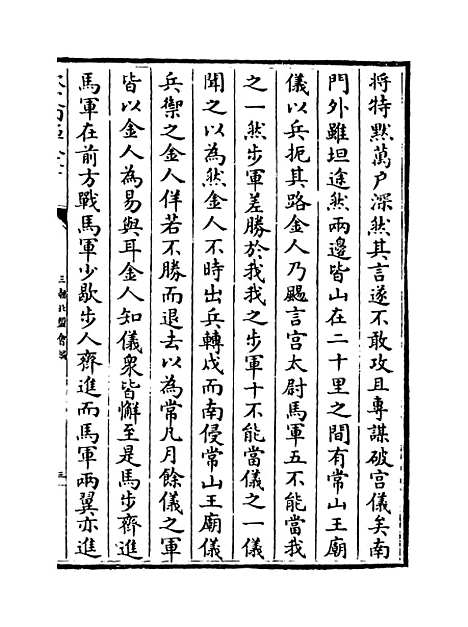 將特黙萬户深然其言遂不敢攻且專謀破宫儀矣南
門外雖坦途然兩邊皆山在二十里之間有常山王廟
儀以兵扼其路金人乃颺言宫太尉馬軍五不能當我
之一然步軍差勝於我我之步軍十不能當儀之一儀
聞之以為然金人不時出兵轉戍而南侵常山王廟儀
兵禦之金人佯若不勝而退去以為常凡月餘儀之軍
皆以金人為易與耳金人知儀衆皆懈至是馬步齊進
馬軍在前方戰馬軍少歇步人齊進而馬軍兩翼亦進
三朝北盟會編